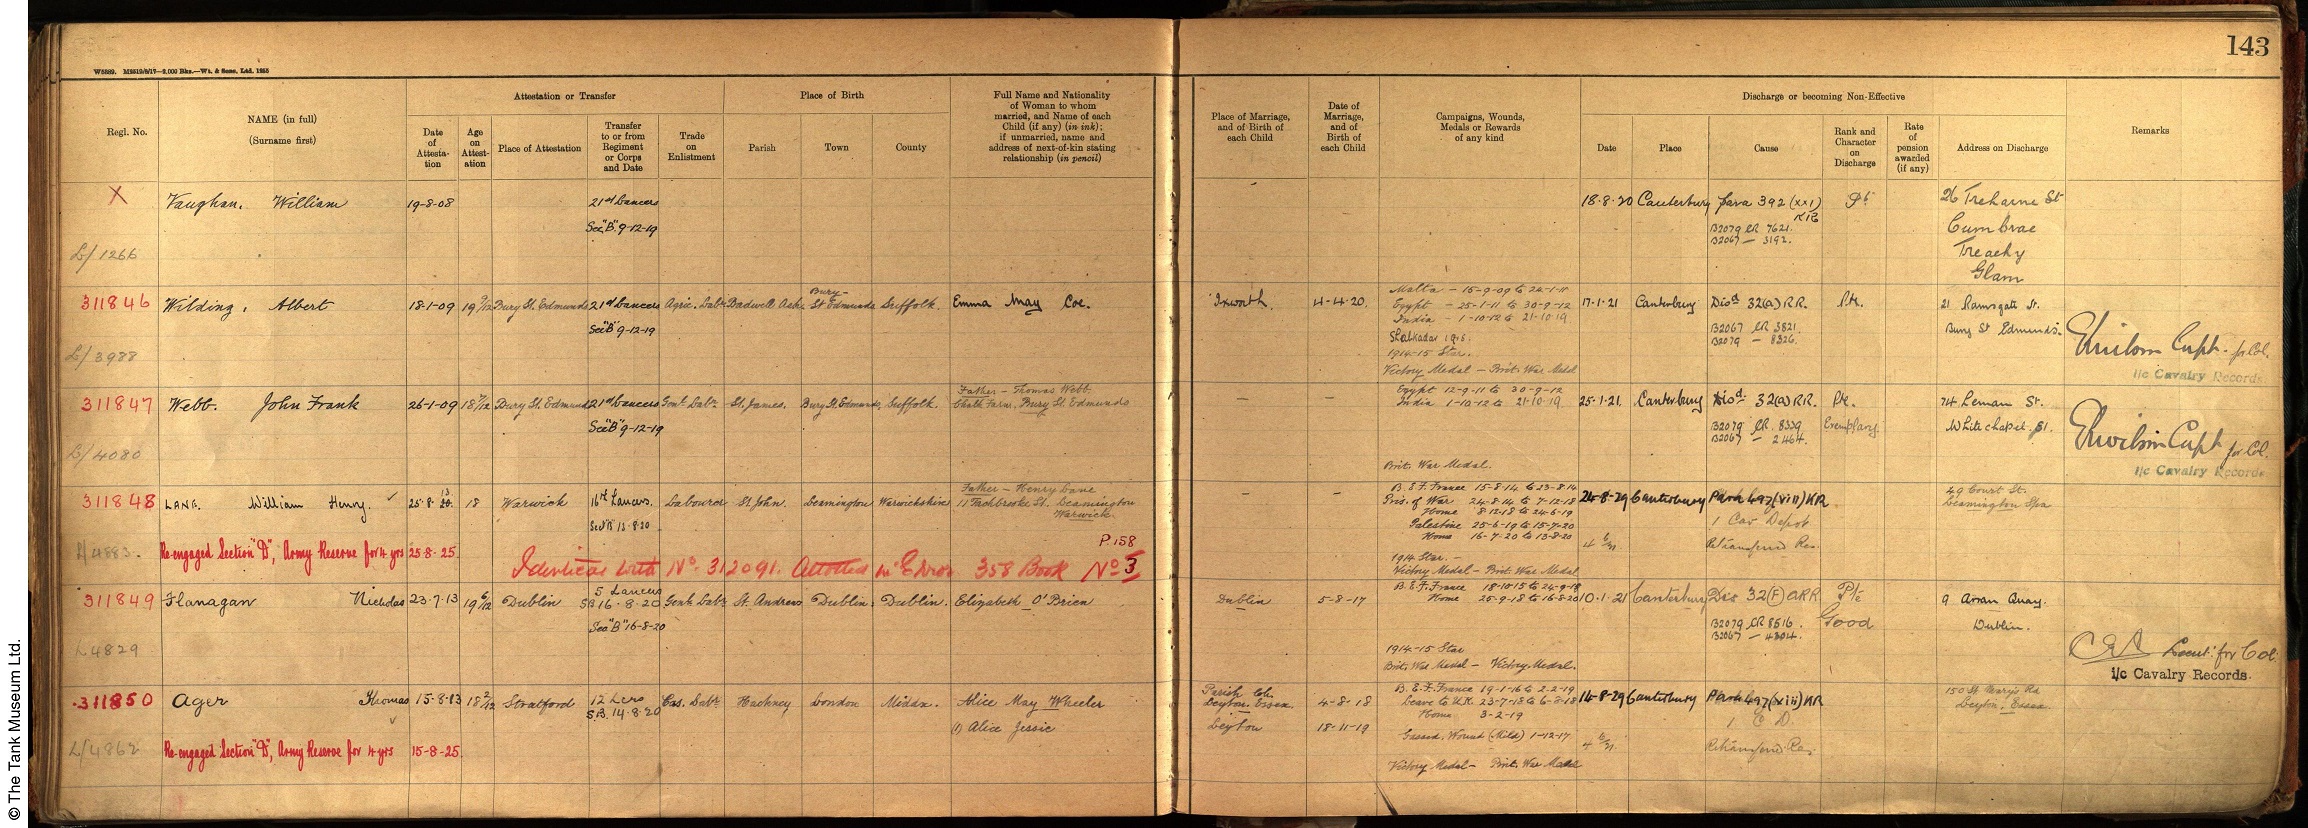 143
W5889. M2519/8/17—2,000 Bks.—Wt. & Sons, Ltd. 1255
Regl. No.
NAME (in full)
(Surname first)
Attestation or Transfer
Date of Attestation
Age on Attestation
Place of Attestation
Transfer to or from Regiment or Corps and Date
Trade on Enlistment
Place of Birth
Parish
Town
County
Full Name and Nationality
of Woman to whom
married, and Name of each
Child (if any) (in ink);
if unmarried, name and
address of next-of-kin stating
relationship (in pencil)
Place of Marriage,
and of Birth of
each Child
Date of
Marriage,
and of
Birth of
each Child
Campaigns, Wounds,
Medals or Rewards
of any kind
Discharge or becoming Non-Effective
Date
Place
Cause
Rank and Character on Discharge
Rate of pension awarded (if any)
Address on Discharge
Remarks
X
Vaughan. William 19-8-08 21st Lancers 18.8.20 Canterbury para 392 (xxi) KR Pt 26 Treharne St
Sec "B" 9-12-19 B2079 CR 7621. Cwmbrae
B2067 — 3192. Treachy
L/1266 Glam
311846 Wilding, Albert 18-1-09 19 9/12 Bury St. Edmunds 21st Lancers Agric. Labr Badwell Ash Bury St Edmunds Suffolk. Emma May Coe. Ixworth 4-4-20.
Sec "B" 9-12-19
L/3988
Malta — 15-9-09 to 24-1-11
Egypt — 25-1-11 to 30-9-12
India — 1-10-12 to 21-10-19
Shabkadar 1915.
1914-15 Star.
Victory Medal — Brit. War Medal
17.1.21 Canterbury Disd 32(a) RR. Pte. 21 Ramsgate St.
B2067 CR 3821. Bury St Edmunds.
B2079 — 8326.
Capt. for Col.
i/c Cavalry Records.
311847 Webb. John Frank 26-1-09 18 7/12 Bury St. Edmunds 21st Lancers Genl. Labr St. James. Bury St. Edmunds, Suffolk.
Father — Thomas Webb.
Chalk Farm. Bury St. Edmunds
Sec "B" 9-12-19
L/4080
— —
Egypt 12-9-11 to 30-9-12
India 1-10-12 to 21-10-19
Brit. War Medal.
25.1.21. Canterbury Disd. 32(a) RR. Pte. 74 Leman St.
B2079 CR. 8339 Exemplary. Whitechapel, E1.
B2067 — 2464.
Capt for Col.
i/c Cavalry Records
311848 LANE. William Henry. 25-8-13 18 Warwick 16th Lancers. Labourer St. John. Leamington Warwickshire
Father — Henry Lane
11 Tachbrooke St. Leamington
Warwick.
Sec "B" 13-8-20
L/4883.
Re-engaged Section "D", Army Reserve for 4 yrs 25-8-25.
P.158
Identical with No. 312091. Allotted in Error 358 Book No 3
— —
B.E.F. France 15-8-14 to 23-8-14
Pris. of War 24-8-14 to 7-12-18
Home 8-12-18 to 24-6-19
Palestine 25-6-19 to 15-7-20
Home 16-7-20 to 13-8-20
1914 Star. —
Victory Medal — Brit. War Medal
24-8-29 Canterbury Para 497 (viii) KR 49 Court St.
1 Cav Depot Leamington Spa
311849 Flanagan Nicholas 23-7-13 19 6/12 Dublin 5 Lancers Genl. Labr St. Andrews Dublin: Dublin. Elizabeth O'Brien Dublin 5-8-17
SB 16.8.20
Sec "B" 16-8-20
L 4829
B.E.F. France 18.10.15 to 24-9-18
Home 25-9-18 to 16-8-20
1914-15 Star
Brit. War Medal — Victory Medal.
10.1.21 Canterbury Dis 32 (F) ARR Pte 9 Arran Quay.
B2079 CR 8516. Good Dublin.
B2067 — 4304.
Lieut. for Col
i/c Cavalry Records.
311850 Ager Thomas 15-8-13 18 2/12 Stratford 12 Lcrs Cas. Labr Hackney London Middx. Alice May Wheeler
SB. 14.8.20
(1) Alice Jessie
L/4862
Re-engaged Section "D", Army Reserve for 4 yrs 15-8-25.
Parish Ch.
Leyton. Essex 4-8-18
Leyton 18-11-19
B.E.F. France 19-1-16 to 2-2-19
Leave to U.K. 23-7-18 to 6-8-18
Home 3-2-19
Gassed. Wound (Mild) 1-12-17
Victory Medal — Brit. War Medal
14-8-29 Canterbury Para 497 (viii) KR 150 St. Mary's Rd
1. C D. Leyton, Essex
© The Tank Museum Ltd.